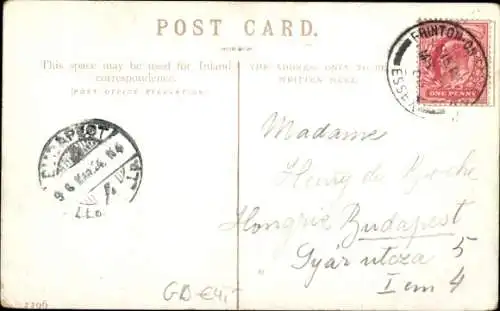 POST CARD.
This space may be used for Inland
correspondence.
(POST OFFICE REGULATION)
THE ADDRESS ONLY TO BE
WRITTEN HERE.
FRINTON-ON-
ESSEX
ONE PENNY
BUDAPEST
Madame
Henry de
Hongrie Budapest
Gyár utcza 5
I em 4
GB €4,-
2296